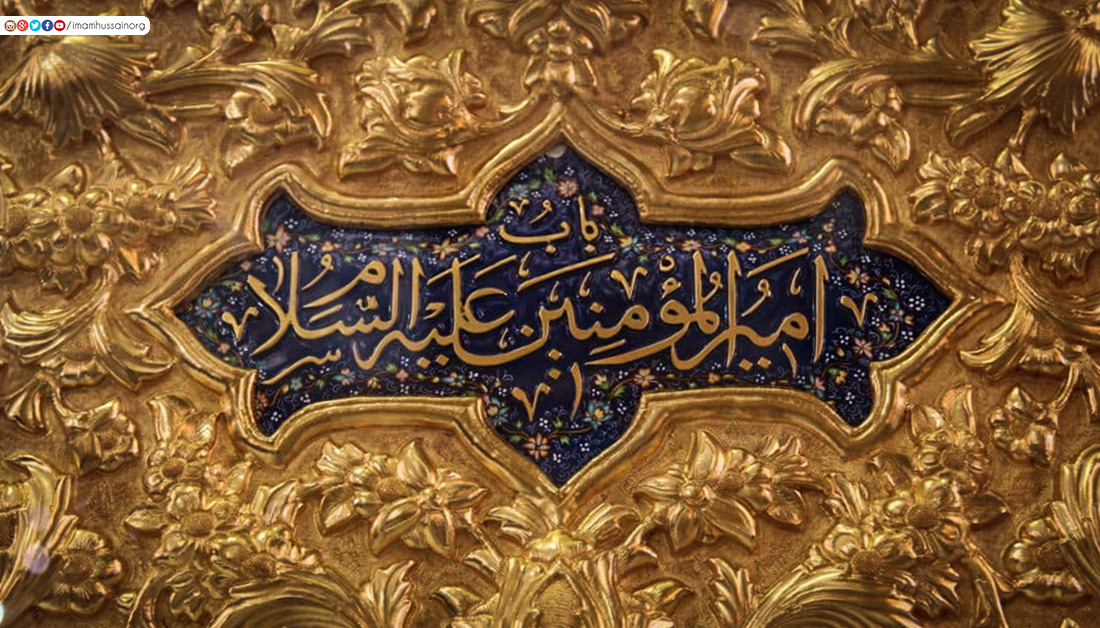 /imamhussainorg
بابُ
امیرالمؤمنین علیه السّلام